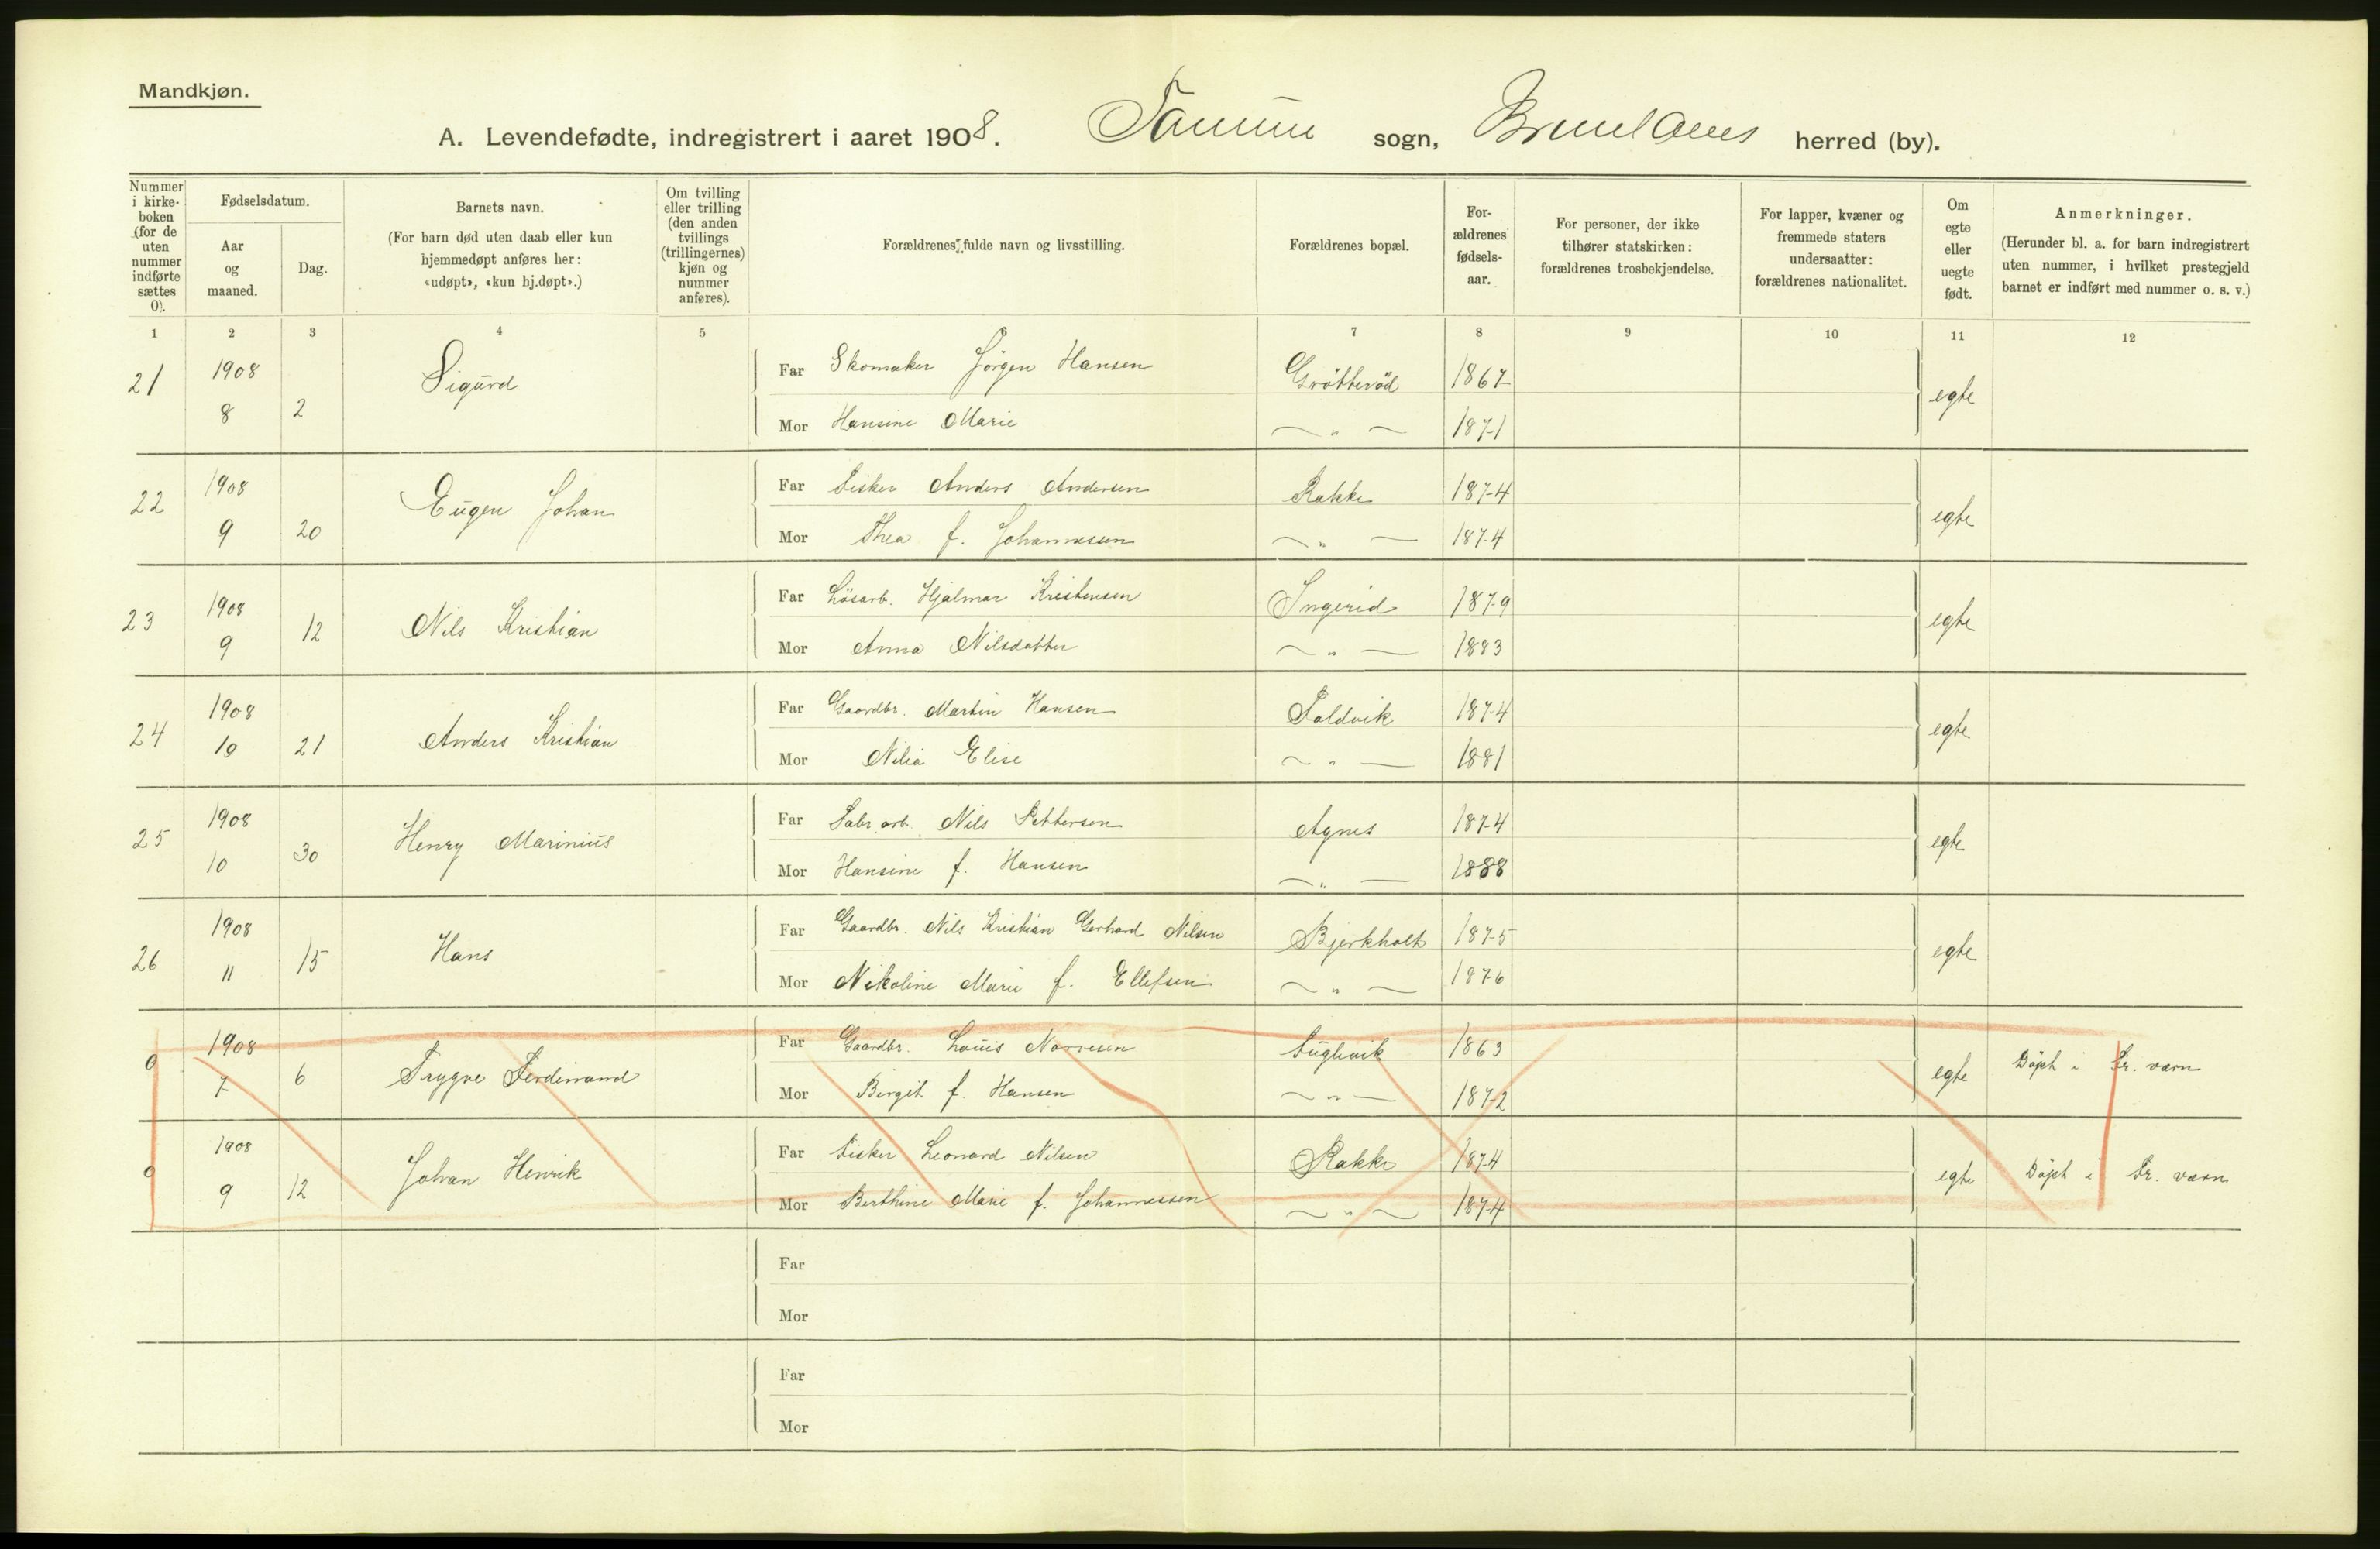 Mandkjøn.
A. Levendefødte, indregistrert i aaret 1908. Tanum sogn, Brunlanes herred (by).
Nummer i kirke-boken (for de uten nummer indførte sættes 0).
Fødselsdatum.
Aar og maaned.
Dag.
Barnets navn.
(For barn død uten daab eller kun hjemmedøpt anføres her: «udøpt», «kun hj.døpt».)
Om tvilling eller trilling (den anden tvillings (trillingernes) kjøn og nummer anføres).
Forældrenes fulde navn og livsstilling.
Forældrenes bopæl.
For-ældrenes fødsels-aar.
For personer, der ikke tilhører statskirken: forældrenes trosbekjendelse.
For lapper, kvæner og fremmede staters undersaatter: forældrenes nationalitet.
Om egte eller uegte født.
Anmerkninger.
(Herunder bl. a. for barn indregistrert uten nummer, i hvilket prestegjeld barnet er indført med nummer o. s. v.)
1 2 3 4 5 6 7 8 9 10 11 12
21 1908 8 2 Sigurd Far Skomaker Jörgen Hansen Grötteröd 1867 egte
Mor Hansine Marie — " — 1871
22 1908 9 20 Eugen Johan Far Fisker Anders Andersen Rakke 1874 egte
Mor Thea f. Johannessen — " — 1874
23 1908 9 12 Nils Kristian Far Lösarb. Hjalmar Kristensen Ingerid 1879 egte
Mor Anna Nilsdatter — " — 1883
24 1908 10 21 Anders Kristian Far Gaardbr. Martin Hansen Foldvik 1874 egte
Mor Nilia Elise — " — 1881
25 1908 10 30 Henry Marinius Far Fabr. arb. Nils Pettersen Agnes 1874 egte
Mor Hansine f. Hansen — " — 1888
26 1908 11 15 Hans Far Gaardbr. Nils Kristian Gerhard Nilsen Bjerkholt 1875 egte
Mor Nikoline Marie f. Ellefsen — " — 1876
0 1908 7 6 Trygve Ferdinand Far Gaardbr. Louis Norvesen Fuglevik 1863 egte Döpt i Fr.værn
Mor Birgit f. Hansen — " — 1872
0 1908 9 12 Johan Henrik Far Fisker Leonard Nilsen Rakke 1874 egte Döpt i Fr. værn
Mor Berthine Marie f. Johannessen — " — 1874
Far
Mor
Far
Mor